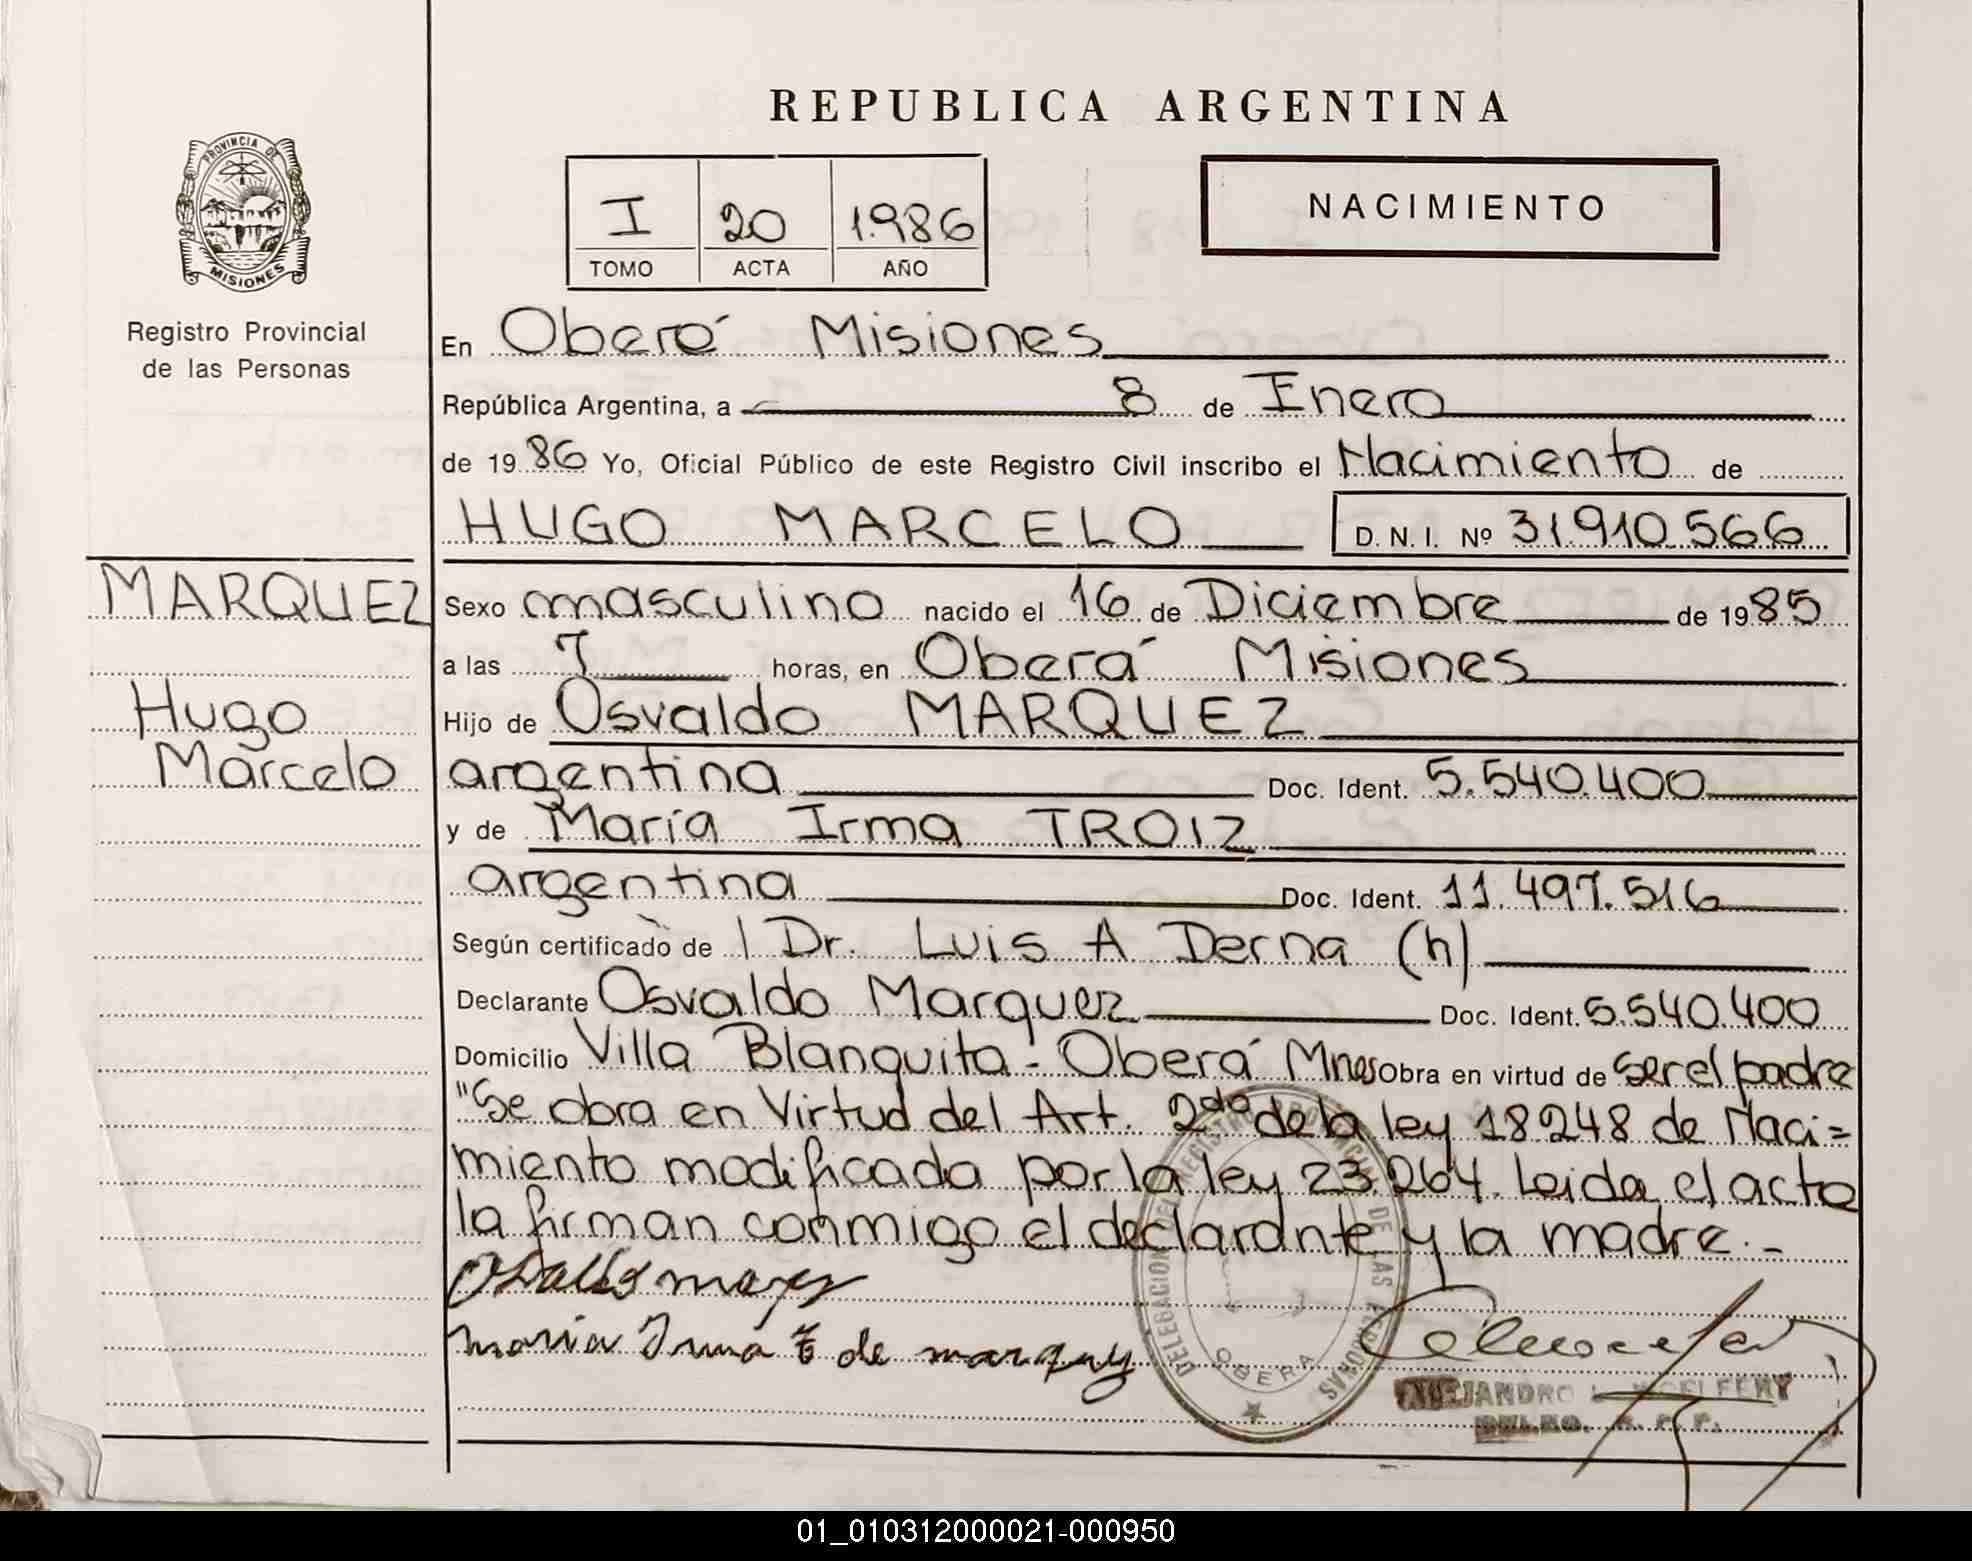 REPUBLICA ARGENTINA
PROVINCIA DE
MISIONES
Registro Provincial
de las Personas
I 20 1.986
TOMO ACTA AÑO
NACIMIENTO
En Oberá Misiones
República Argentina, a 8 de Enero
de 1986 Yo, Oficial Público de este Registro Civil inscribo el Nacimiento de
HUGO MARCELO D. N. I. Nº 31.910.566
MARQUEZ
Hugo
Marcelo
Sexo masculino nacido el 16 de Diciembre de 1985
a las 7 horas, en Oberá Misiones
Hijo de Osvaldo MARQUEZ
argentina Doc. Ident. 5.540.400
y de María Irma TROIZ
argentina Doc. Ident. 11.497.516
Según certificado de Dr. Luis A Derna (h)
Declarante Osvaldo Marquez Doc. Ident. 5.540.400
Domicilio Villa Blanquita - Oberá Mnes Obra en virtud de ser el padre
"Se obra en Virtud del Art. 2do de la ley 18248 de Naci=
miento modificada por la ley 23.264. Leida el acta
la firman conmigo el declarante y la madre.-
maria Irma T de marquez
DELEGACION DEL REGISTRO PROVINCIAL DE LAS PERSONAS
OBERA
ALEJANDRO
DELEG. R. P. P.
01_010312000021-000950